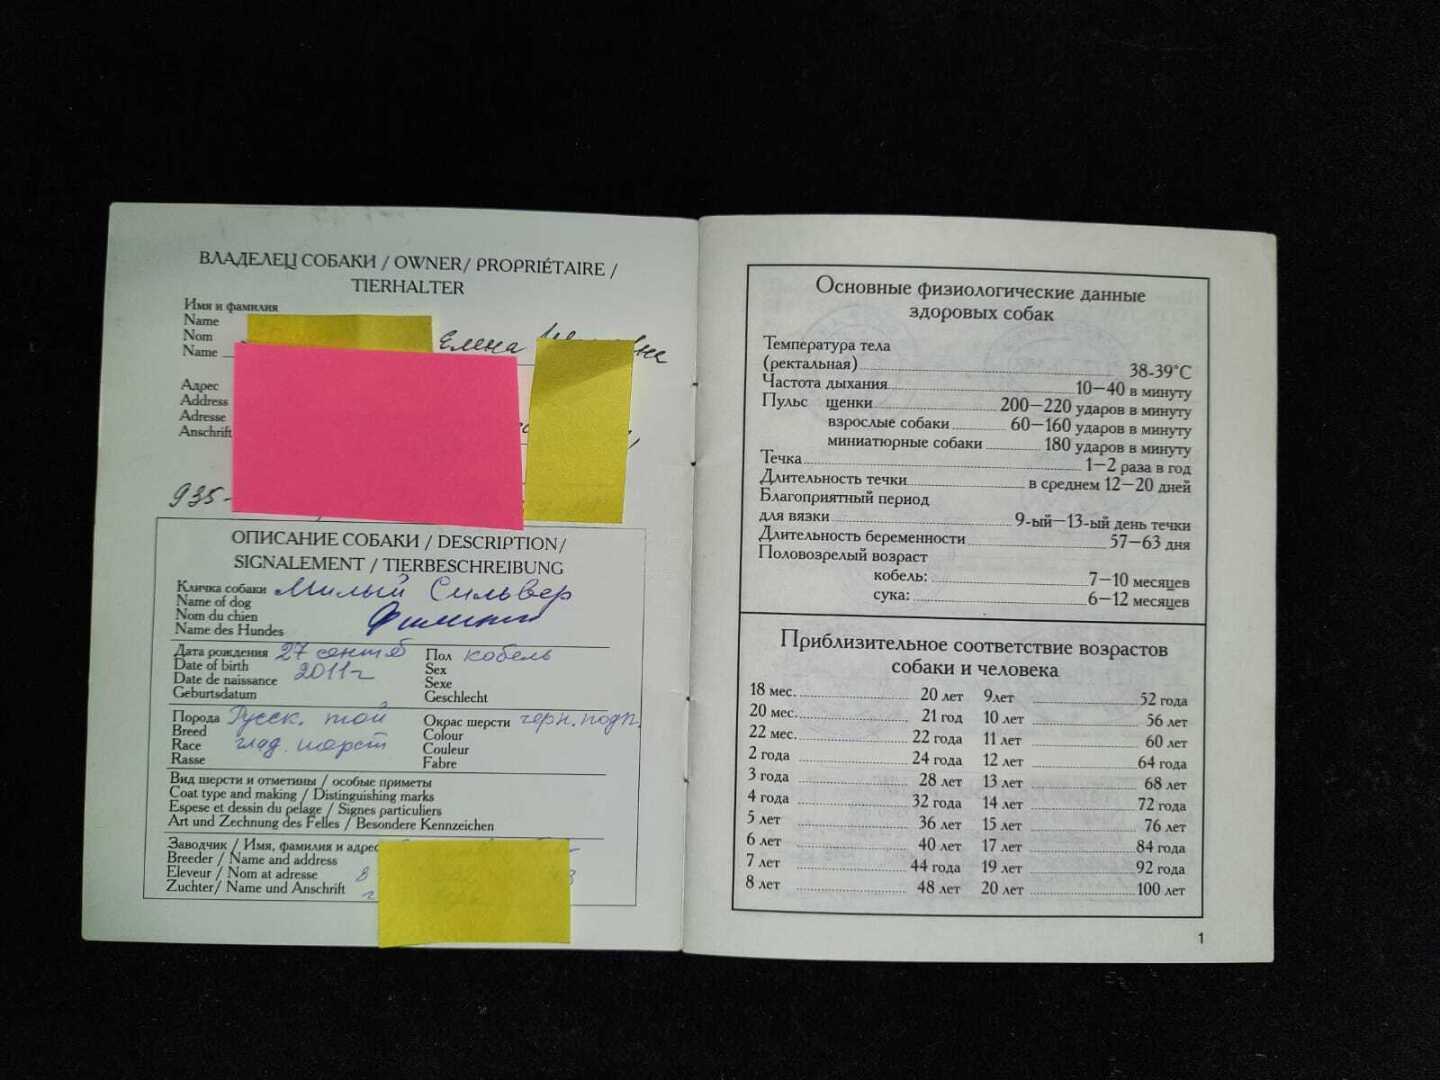 ВЛАДЕЛЕЦ СОБАКИ / OWNER/ PROPRIÉTAIRE /
TIERHALTER
Имя и фамилия
Name
Nom
Name
Елена
Адрес
Address
Adresse
Anschrift
935-
ОПИСАНИЕ СОБАКИ / DESCRIPTION/
SIGNALEMENT / TIERBESCHREIBUNG
Кличка собаки Милый Сильвер
Name of dog
Nom du chien Филипп
Name des Hundes
Дата рождения 27 сентяб Пол кобель
Date of birth 2011г Sex
Date de naissance Sexe
Geburtsdatum Geschlecht
Порода Русск. той Окрас шерсти черн. подп.
Breed Colour
Race глад. шерст Couleur
Rasse Fabre
Вид шерсти и отметины / особые приметы
Coat type and making / Distinguishing marks
Espese et dessin du pelage / Signes particuliers
Art und Zechnung des Felles / Besondere Kennzeichen
Заводчик / Имя, фамилия и адрес
Breeder / Name and address
Eleveur / Nom at adresse
Zuchter/ Name und Anschrift
Основные физиологические данные
здоровых собак
Температура тела
(ректальная) 38-39°С
Частота дыхания 10—40 в минуту
Пульс щенки 200—220 ударов в минуту
взрослые собаки 60—160 ударов в минуту
миниатюрные собаки 180 ударов в минуту
Течка 1—2 раза в год
Длительность течки в среднем 12—20 дней
Благоприятный период
для вязки 9-ый—13-ый день течки
Длительность беременности 57—63 дня
Половозрелый возраст
кобель: 7—10 месяцев
сука: 6—12 месяцев
Приблизительное соответствие возрастов
собаки и человека
18 мес. 20 лет 9лет 52 года
20 мес. 21 год 10 лет 56 лет
22 мес. 22 года 11 лет 60 лет
2 года 24 года 12 лет 64 года
3 года 28 лет 13 лет 68 лет
4 года 32 года 14 лет 72 года
5 лет 36 лет 15 лет 76 лет
6 лет 40 лет 17 лет 84 года
7 лет 44 года 19 лет 92 года
8 лет 48 лет 20 лет 100 лет
1